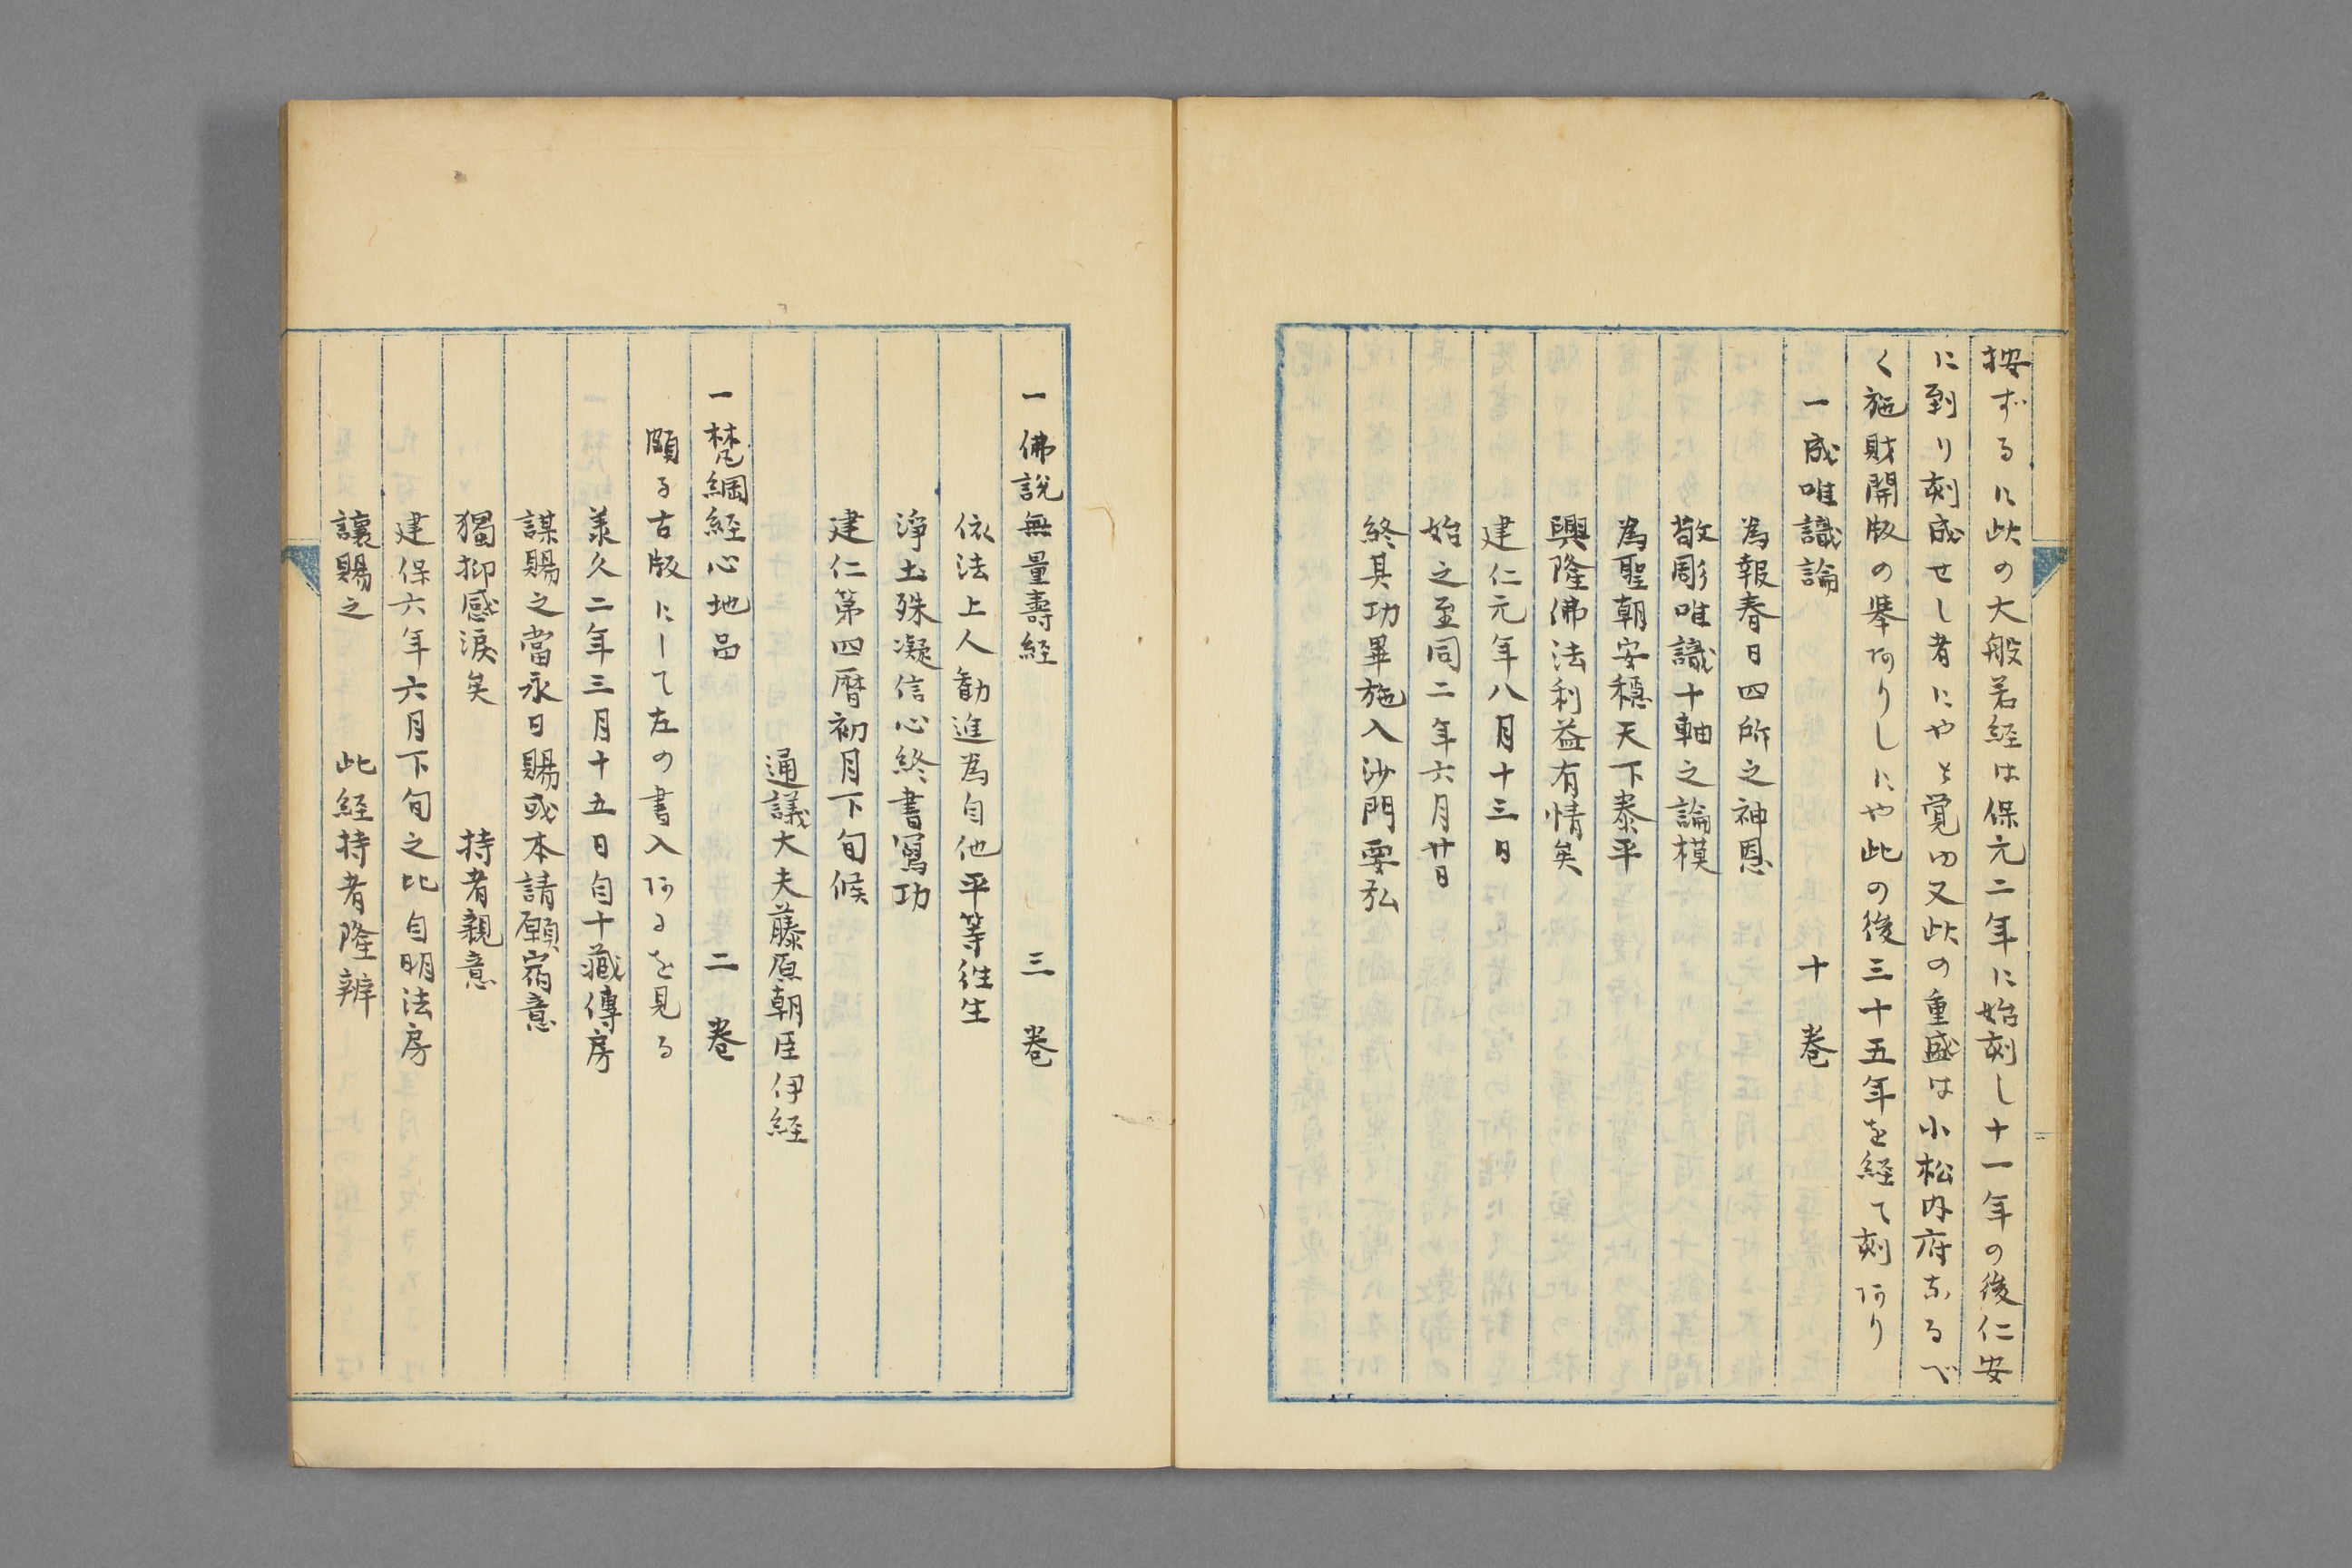 按ずるに此の大般若経は保元二年に始刻し十一年の後仁安
に到り刻成せし者にやと覚ゆ又此の重盛は小松内府なるべ
く施財開版の挙ありしにや此の後三十五年を経て刻あり
一成唯識論　十巻
為報春日四所之神恩
敬彫唯識十軸之論模
為聖朝安穏天下泰平
興隆佛法利益有情矣
建仁元年八月十三日
始之至同二年六月廿日
終其功畢施入沙門要弘
一佛説無量壽経　三巻
依法上人勧進為自他平等往生
淨土殊凝信心終書寫功
建仁第四暦初月下旬候
通議大夫藤原朝臣伊経
一梵綱経心地品　二巻
頗る古版にして左の書入あるを見る
羕久二年三月十五日自十蔵傳房
謀賜之當永日賜或本請願宿意
獨抑感涙矣　持者親意
建保六年六月下旬之比自明法房
譲賜之　此経持者隆辨